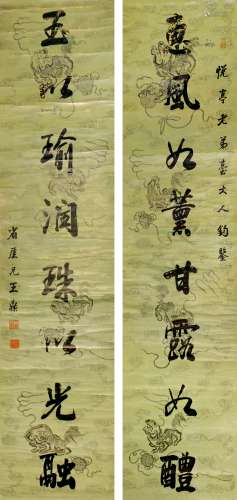 悦亭老弟台大人钧鉴
惠風如薰甘露如醴
玉以瑜润珠以光融
省厓兄王鼎